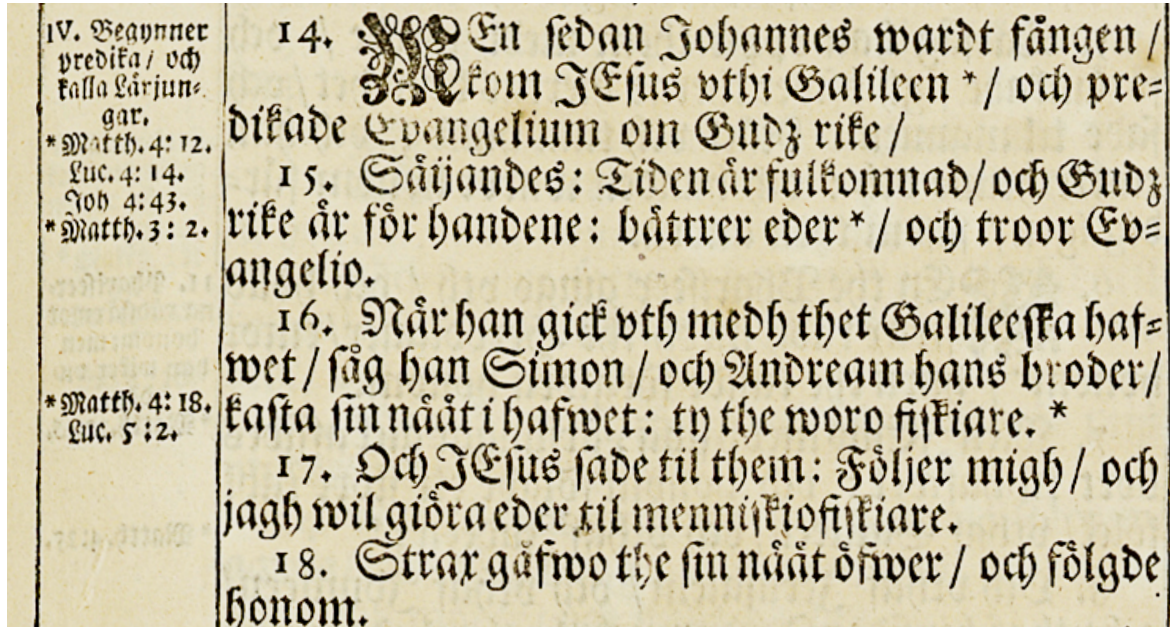 IV. Begynner
predika / och
kalla Lärjun=
gar.
* Matth. 4: 12.
Luc. 4: 14.
Joh 4: 43.
* Matth. 3: 2.
* Matth. 4: 18.
Luc. 5: 2.
14. MEn sedan Johannes wardt fången /
kom JEsus vthi Galileen * / och pre=
dikade Evangelium om Gudz rike /
15. Säijandes: Tiden är fulkomnad / och Gudz
rike är för handene: bättrer eder * / och troor Ev=
angelio.
16. När han gick vth medh thet Galileeska haf=
wet / såg han Simon / och Andream hans broder /
kasta sin näät i hafwet: ty the woro fiskiare. *
17. Och JEsus sade til them: Följer migh / och
jagh wil giöra eder til menniskiofiskiare.
18. Strax gåfwo the sin näät öfwer / och fölgde
honom.